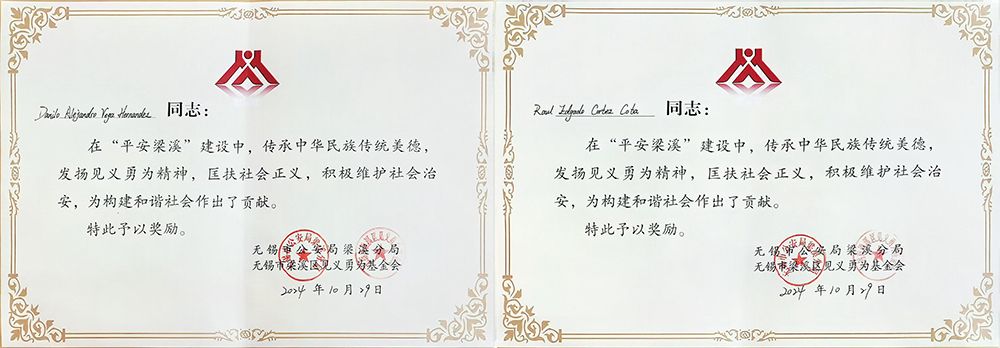 Danilo Alejandro Vega Hernandez 同志：
在“平安梁溪”建设中，传承中华民族传统美德，
发扬见义勇为精神，匡扶社会正义，积极维护社会治
安，为构建和谐社会作出了贡献。
特此予以奖励。
无锡市公安局梁溪分局
无锡市梁溪区见义勇为基金会
2024 年 10 月 29 日
Raul Edgardo Cortez Cota 同志：
在“平安梁溪”建设中，传承中华民族传统美德，
发扬见义勇为精神，匡扶社会正义，积极维护社会治
安，为构建和谐社会作出了贡献。
特此予以奖励。
无锡市公安局梁溪分局
无锡市梁溪区见义勇为基金会
2024 年 10 月 29 日